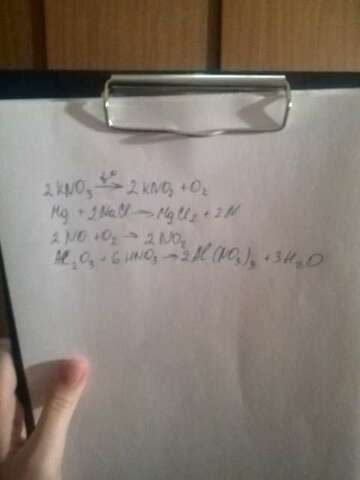 2KNO₃ t° → 2KNO₂ + O₂
Mg + 2NaCl → MgCl₂ + 2N
2NO + O₂ → 2NO₂
Al₂O₃ + 6HNO₃ → 2Al(NO₃)₃ + 3H₂O